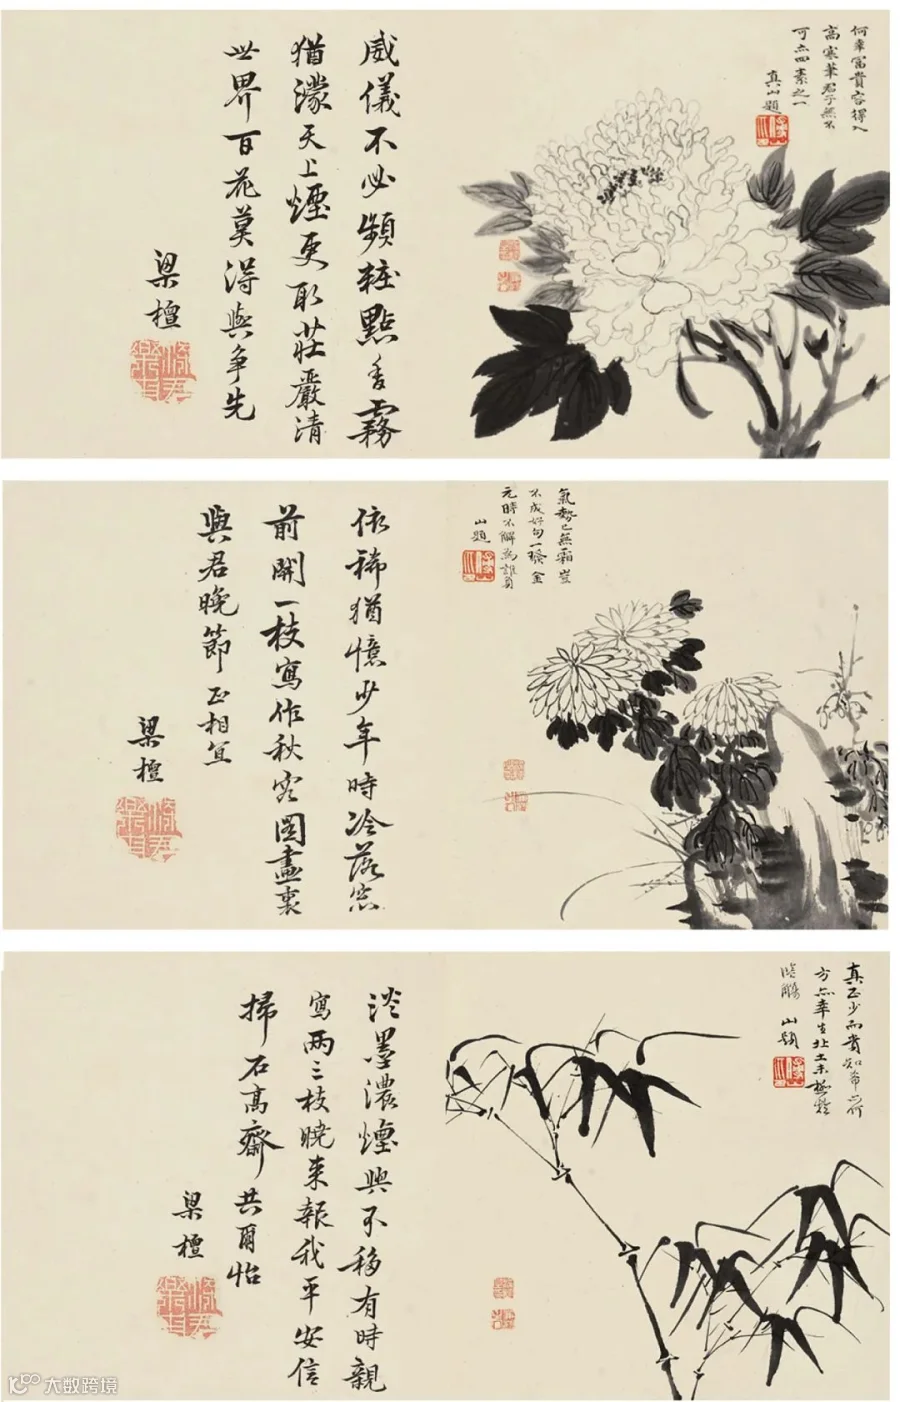 何幸富貴容得入
高寒筆君子無不
可亦四素之一
真山題
威儀不必頻粧點香霧
猶濛天上煙更取莊嚴清
世界百花莫得與爭先
梁檀
氣勢已無霜豈
不成好句一金
元時不解為誰
山題
依稀猶憶少年時冷落窓
前開一枝寫作秋容圖畫裏
與君晚節正相宜
梁檀
真正少而貴知希亦何
方亦幸生北土未
山題
淡墨濃煙興不移有時親
寫兩三枝曉來報我平安信
掃石高齋共爾怡
梁檀
大数跨境